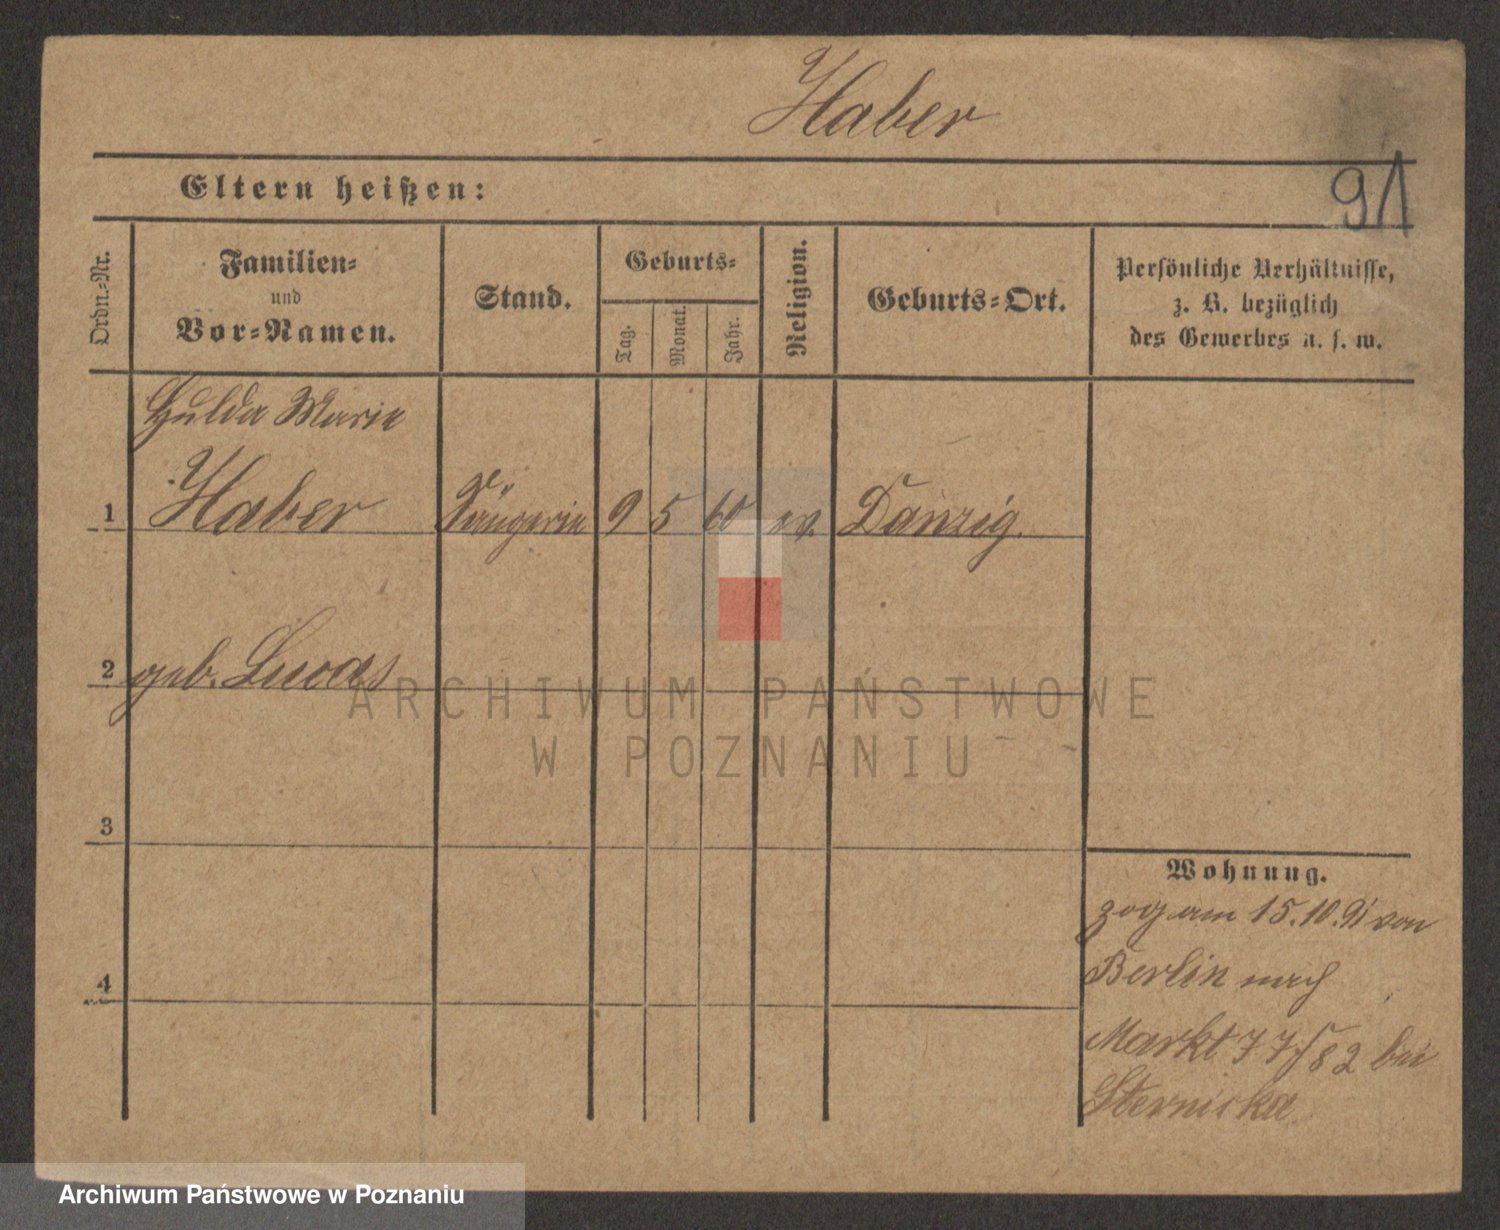 Haber
91
Eltern heißen:
Ordn.-Nr.
Familien-
und
Vor-Namen.
Stand.
Geburts-
Tag.
Monat.
Jahr.
Religion.
Geburts-Ort.
Persönliche Verhältnisse,
z. B. bezüglich
des Gewerbes u. s. w.
Hulda Marie
1 Haber Sängerin 9 5 60 ev. Danzig.
2 geb. Lucas
3
4
Wohnung.
zog am 15.10.91 von
Berlin nach
Markt 77/82 bei
Sternicka
ARCHIWUM PAŃSTWOWE
W POZNANIU
Archiwum Państwowe w Poznaniu